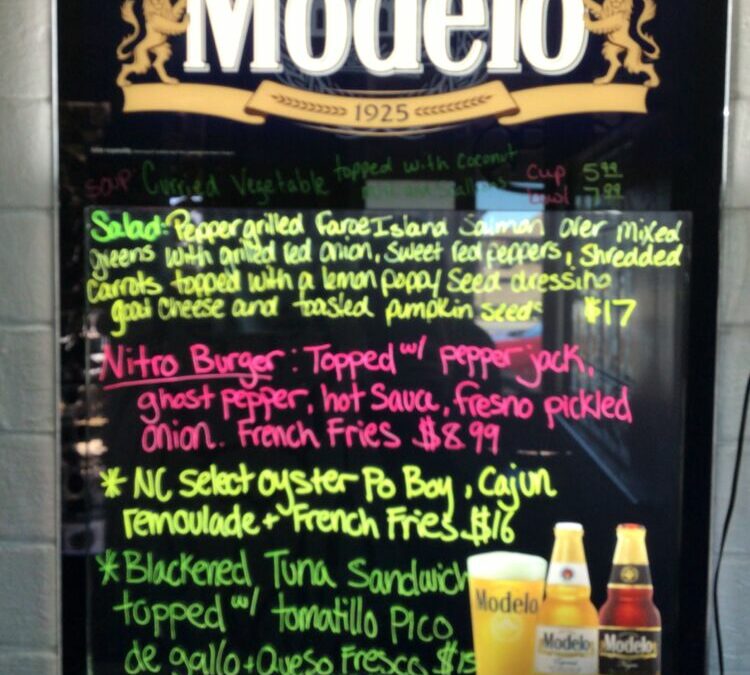 Modelo
1925
Soup: Curried Vegetable topped with Coconut cup 5.99
and Scallions bowl 7.99
Salad: Pepper grilled Faroe Island Salmon over mixed
greens with grilled red onion, sweet red peppers, Shredded
Carrots topped with a lemon poppy Seed dressing
goat cheese and toasted pumpkin seeds $17
Nitro Burger: Topped w/ pepper jack,
ghost pepper, hot sauce, fresno pickled
onion. French Fries $8.99
* NC select oyster Po Boy, Cajun
remoulade + French Fries $16
* Blackened Tuna Sandwich
topped w/ tomatillo Pico
de gallo + Queso Fresco $15
Modelo
Modelo
Especial
Modelo
Negra